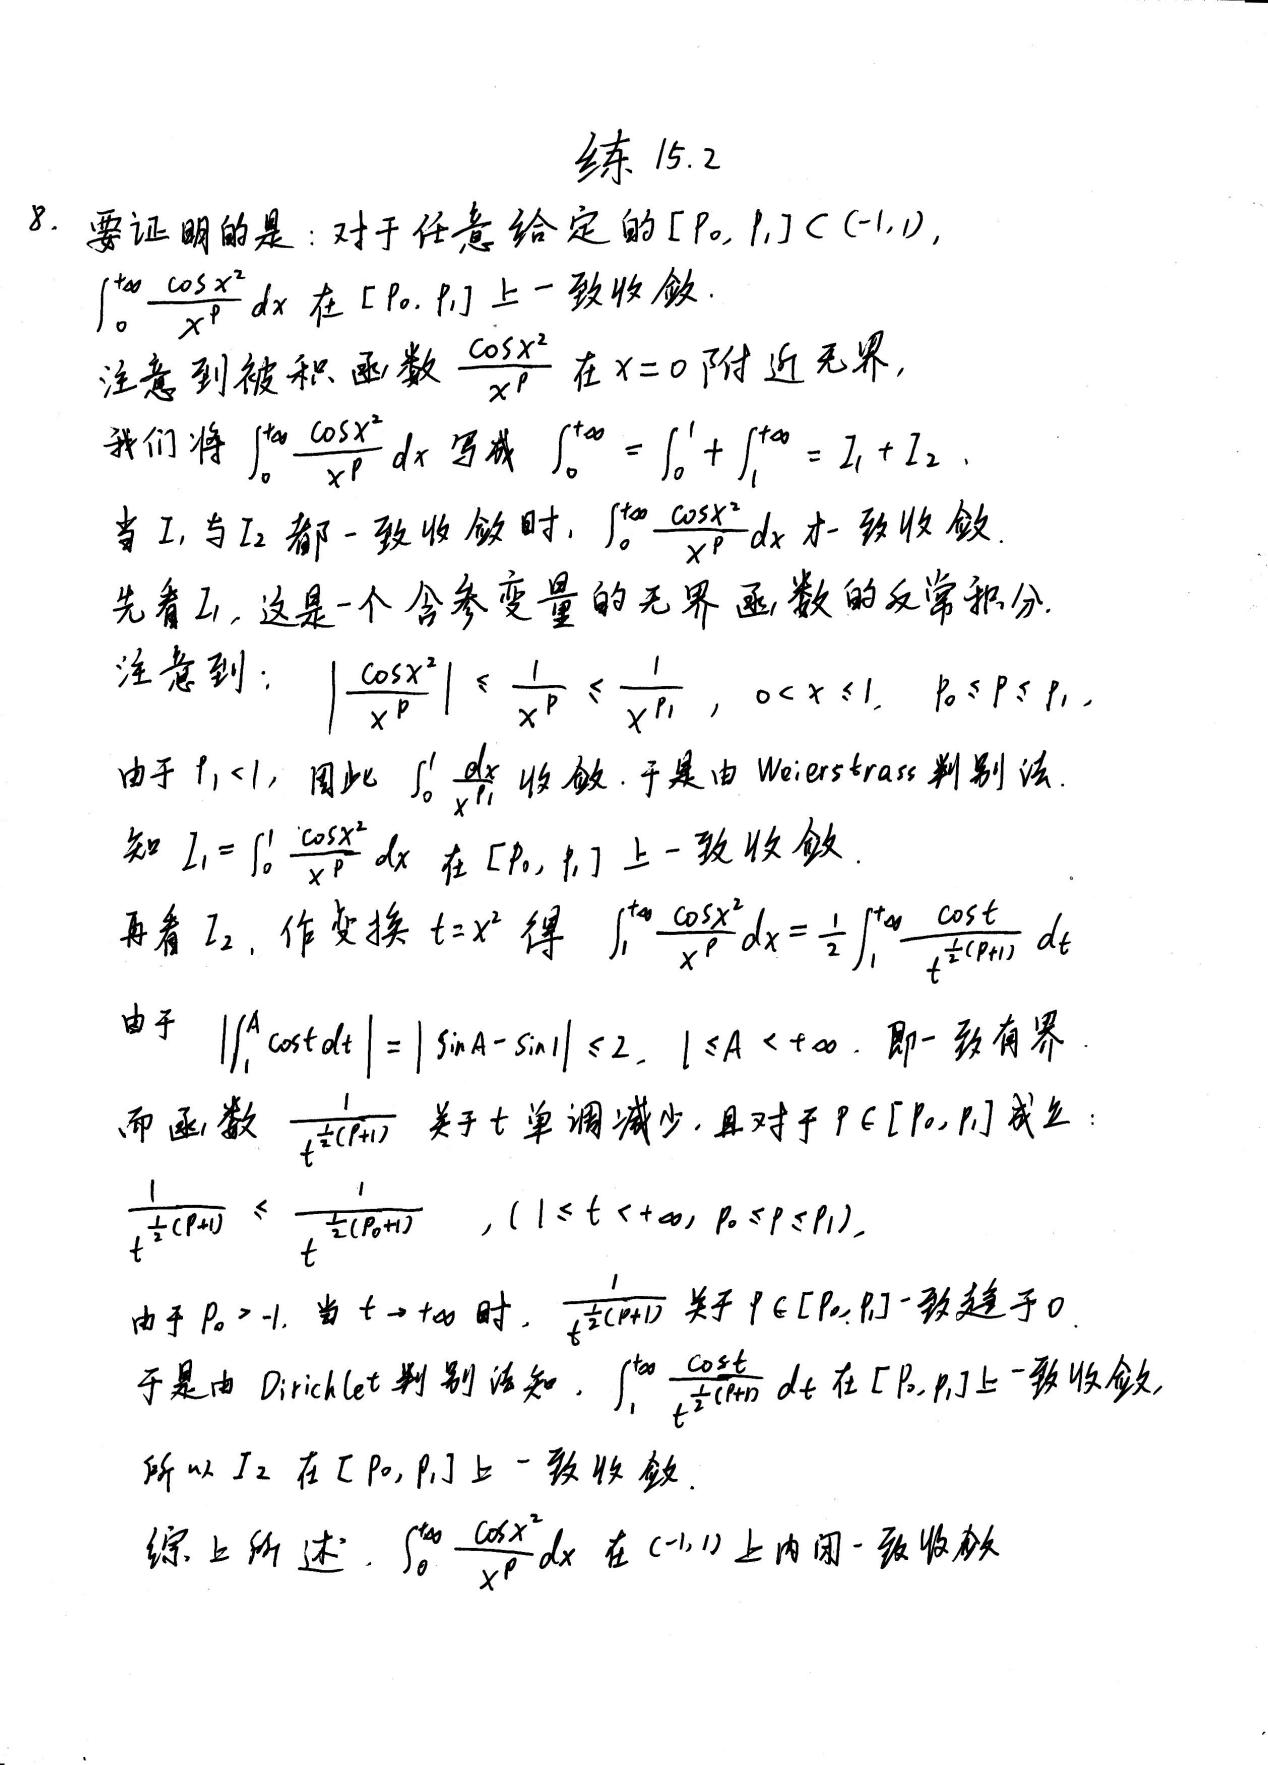 练 15.2
8. 要证明的是：对于任意给定的 [p₀, p₁] ⊂ (-1, 1),
∫₀^{+∞} \frac{cos x²}{x^p} dx 在 [p₀, p₁] 上一致收敛.
注意到被积函数 \frac{cos x²}{x^p} 在 x=0 附近无界,
我们将 ∫₀^{+∞} \frac{cos x²}{x^p} dx 写成 ∫₀^{+∞} = ∫₀^1 + ∫₁^{+∞} = I₁ + I₂.
当 I₁ 与 I₂ 都一致收敛时, ∫₀^{+∞} \frac{cos x²}{x^p} dx 才一致收敛.
先看 I₁, 这是一个含参变量的无界函数的反常积分.
注意到： |\frac{cos x²}{x^p}| ≤ \frac{1}{x^p} ≤ \frac{1}{x^{p₁}}, 0 < x ≤ 1, p₀ ≤ p ≤ p₁,
由于 p₁ < 1, 因此 ∫₀^1 \frac{dx}{x^{p₁}} 收敛. 于是由 Weierstrass 判别法.
知 I₁ = ∫₀^1 \frac{cos x²}{x^p} dx 在 [p₀, p₁] 上一致收敛.
再看 I₂, 作变换 t = x² 得 ∫₁^{+∞} \frac{cos x²}{x^p} dx = \frac{1}{2} ∫₁^{+∞} \frac{cos t}{t^{\frac{1}{2}(p+1)}} dt
由于 |∫₁^A cos t dt| = |sin A - sin 1| ≤ 2, 1 ≤ A < +∞. 即一致有界.
而函数 \frac{1}{t^{\frac{1}{2}(p+1)}} 关于 t 单调减少, 且对于 p ∈ [p₀, p₁] 成立：
\frac{1}{t^{\frac{1}{2}(p+1)}} ≤ \frac{1}{t^{\frac{1}{2}(p₀+1)}}, (1 ≤ t < +∞, p₀ ≤ p ≤ p₁),
由于 p₀ > -1, 当 t → +∞ 时, \frac{1}{t^{\frac{1}{2}(p+1)}} 关于 p ∈ [p₀, p₁] 一致趋于 0.
于是由 Dirichlet 判别法知, ∫₁^{+∞} \frac{cos t}{t^{\frac{1}{2}(p+1)}} dt 在 [p₀, p₁] 上一致收敛,
所以 I₂ 在 [p₀, p₁] 上一致收敛.
综上所述, ∫₀^{+∞} \frac{cos x²}{x^p} dx 在 (-1, 1) 上内闭一致收敛